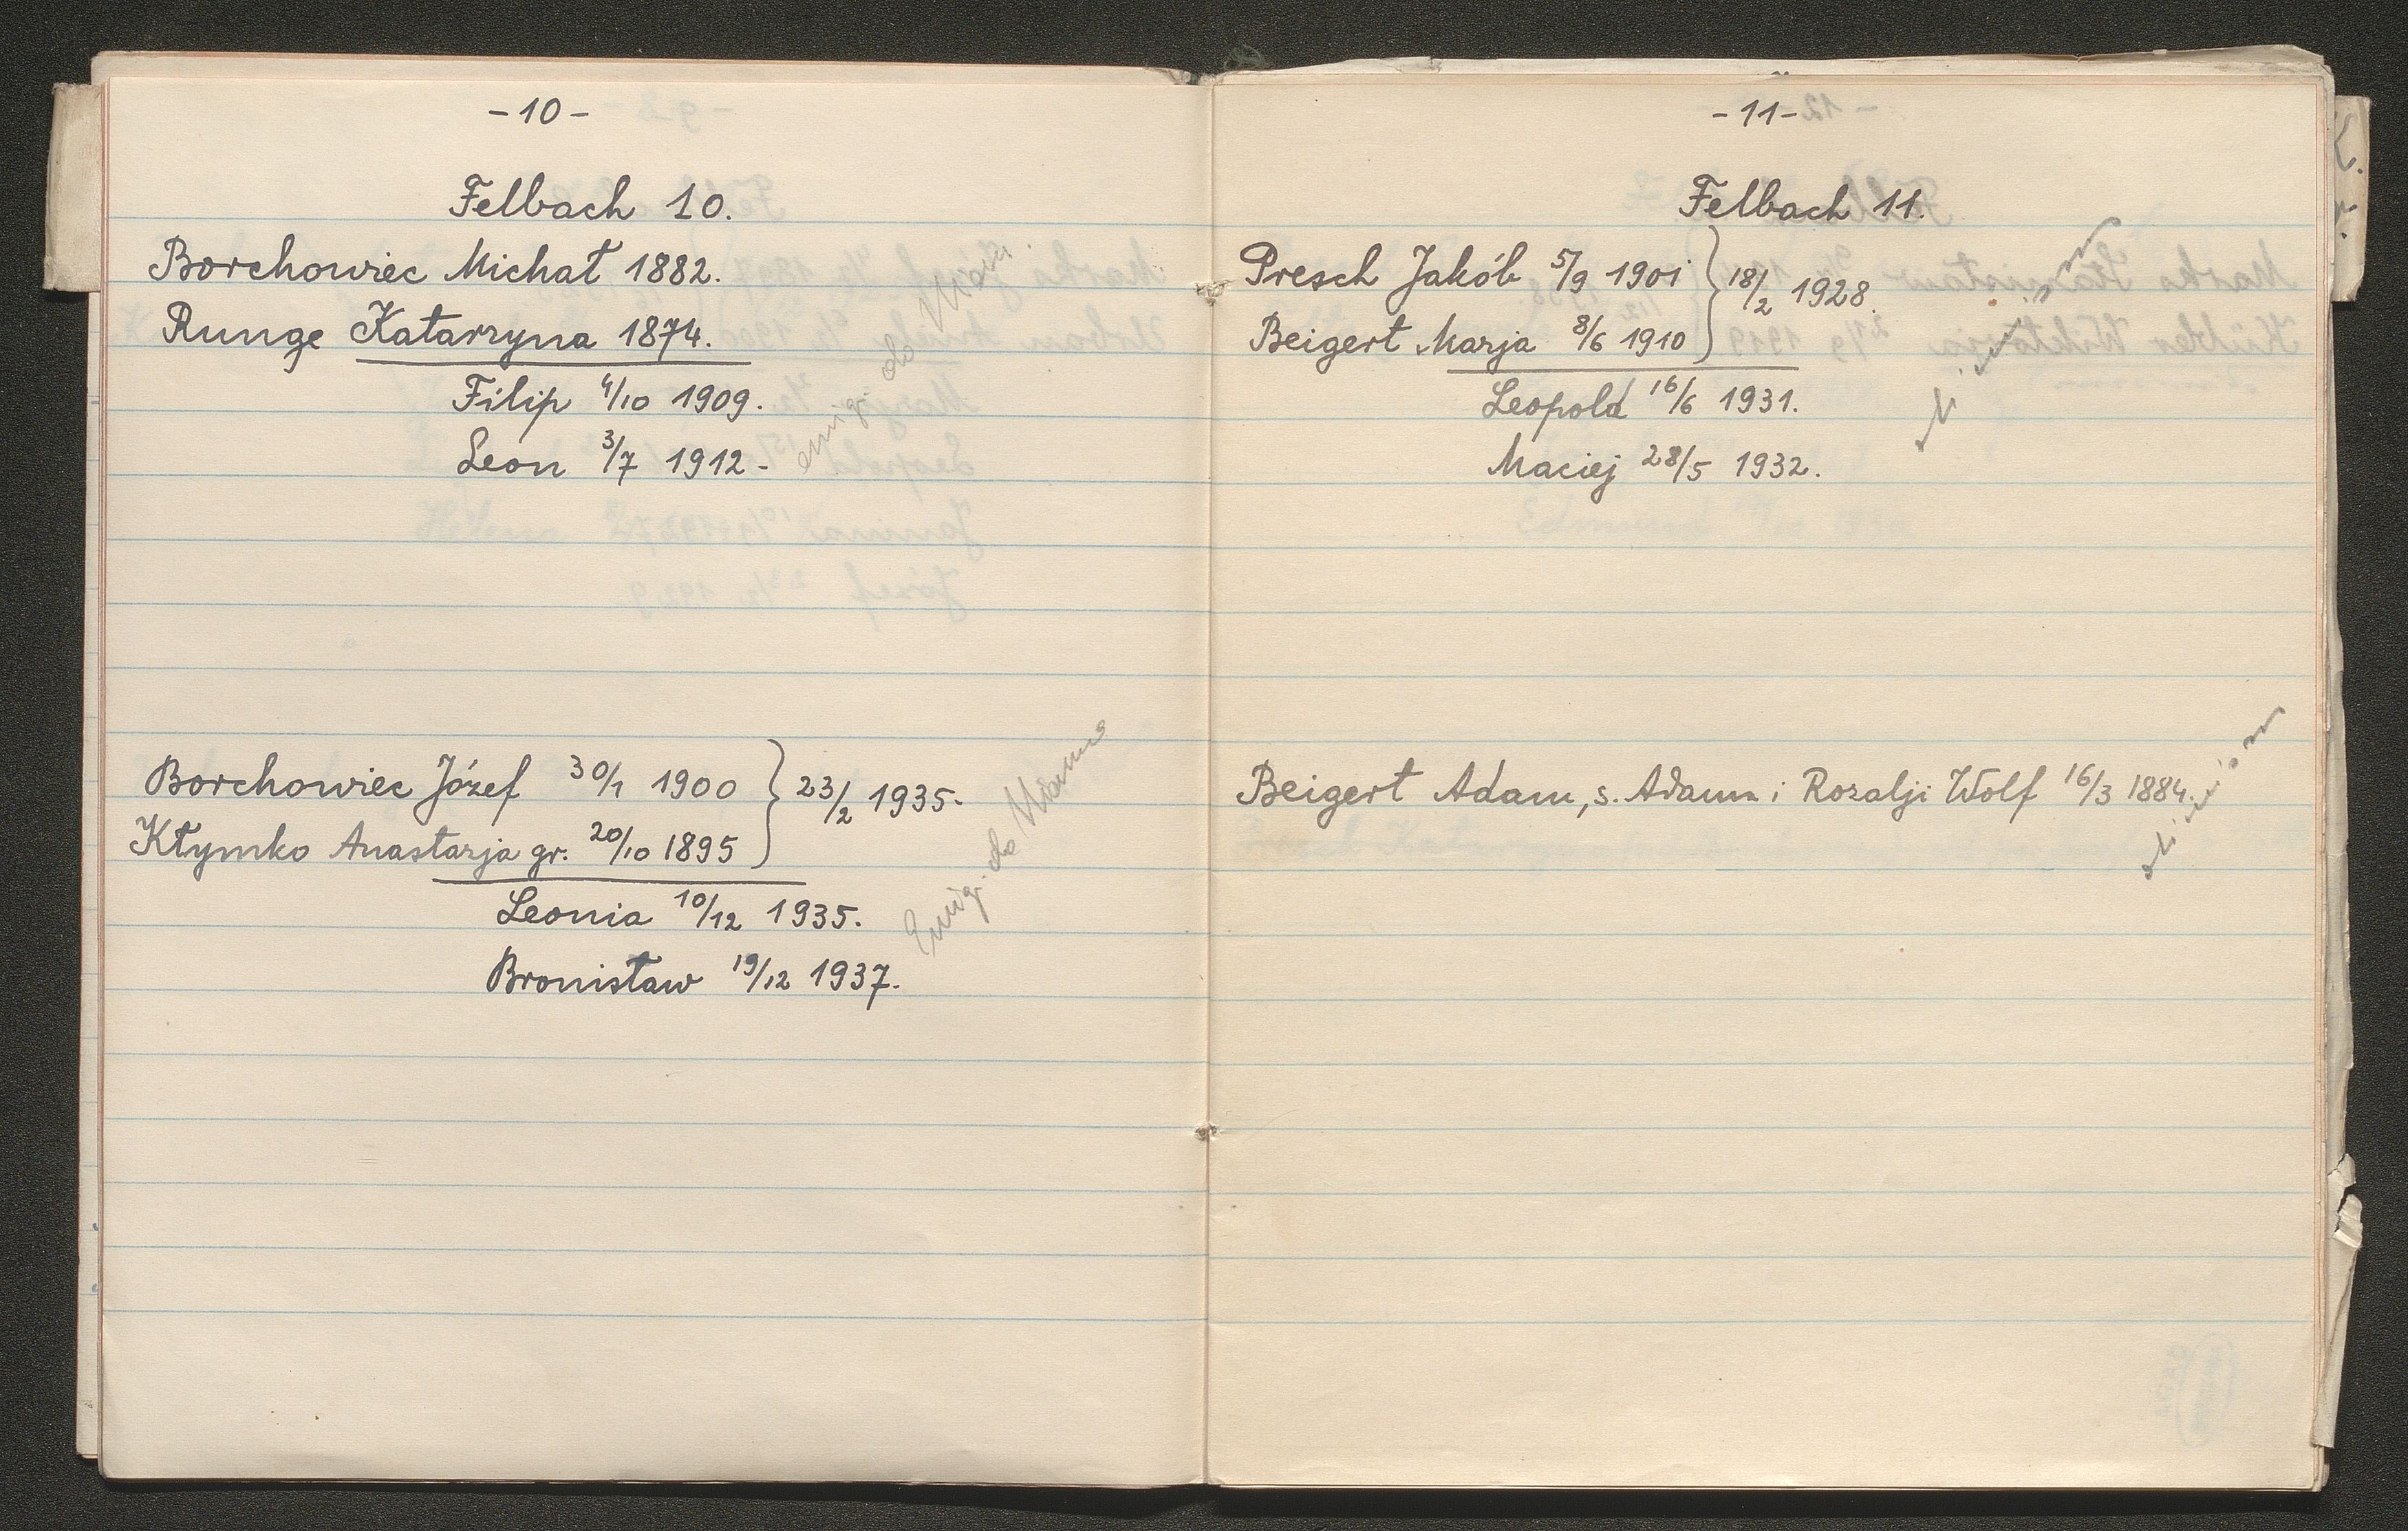 -10-
Felbach 10.
Borchowiec Michał 1882.
Runge Katarzyna 1874.
Filip 4/10 1909.
Leon 3/7 1912-
emigr. do
Borchowiec Józef 30/1 1900 } 23/2 1935.
Kłymko Anastazja gr. 20/10 1895
Leonia 10/12 1935.
Bronisław 19/12 1937.
Emigr. do
-11-
Felbach 11.
Presch Jakób 5/9 1901 } 18/2 1928.
Beigert Marja 8/6 1910
Leopold 16/6 1931.
Maciej 28/5 1932.
Beigert Adam, s. Adama i Rozalji Wolf 16/3 1884.